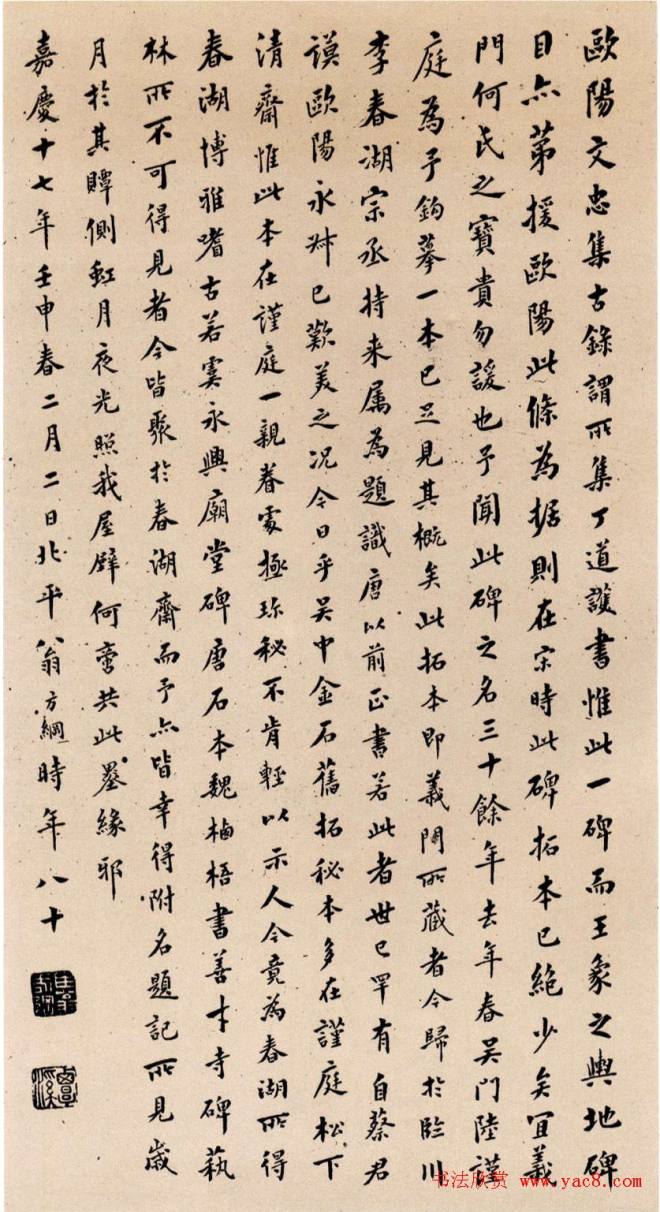 歐陽文忠集古錄謂所集丁道護書惟此一碑而王象之輿地碑
目亦第援歐陽此條為据則在宋時此碑拓本已絕少矣宜義
門何氏之寶貴勿諼也予聞此碑之名三十餘年去年春吳門陸謹
庭為予鈎摹一本已足見其概矣此拓本即義門所藏者今歸於臨川
李春湖宗丞持来属為題識唐以前正書若此者世已罕有自蔡君
謨歐陽永叔已歎美之况今日乎吳中金石舊拓秘本多在謹庭松下
清齋惟此本在謹庭一親眷處極珎秘不肯輕以示人今竟為春湖所得
春湖博雅嗜古若虞永興廟堂碑唐石本魏栖梧書善才寺碑蓺
林所不可得見者今皆聚於春湖齋而予亦皆幸得附名題記所見歲
月於其贉側虹月夜光照我屋壁何啻共此墨緣耶
嘉慶十七年壬申春二月二日北平翁方綱時年八十
书法欣赏 www.yac8.com